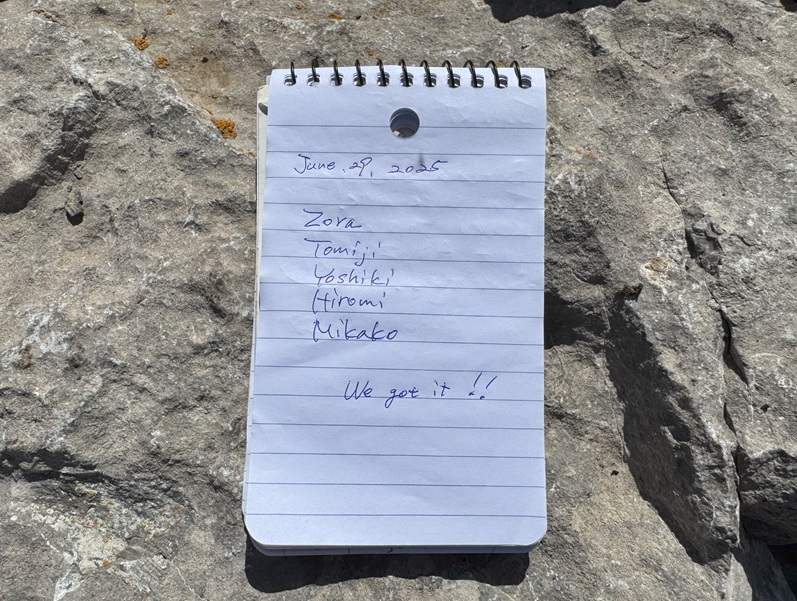 June. 29. 2025
Zora
Tomiji
Yoshiki
Hiromi
Mikako
We got it !!